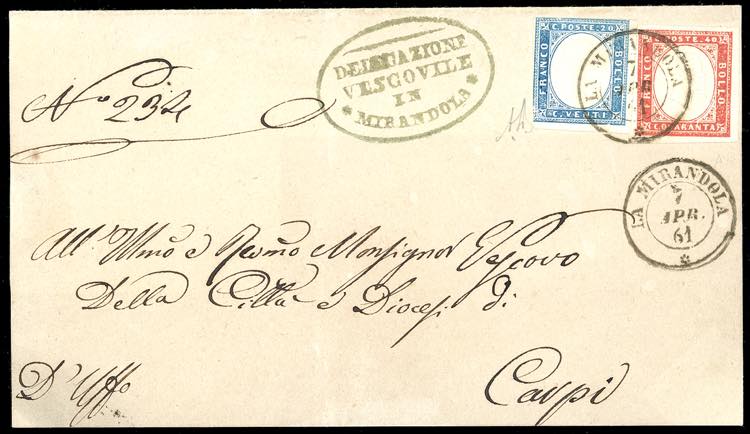 DELEGAZIONE
VESCOVILE
IN
* MIRANDOLA *
C. POSTE. 20
FRANCO
BOLLO
C. VENTI
C. POSTE. 40
FRANCO
BOLLO
C. QUARANTA
LA MIRANDOLA
7
APR
61
Nº 234
LA MIRANDOLA
7
APR.
61
*
All' Illmo e Revmo Monsignor Vescovo
Della Città e Diocesi di
Carpi
D'Uffo